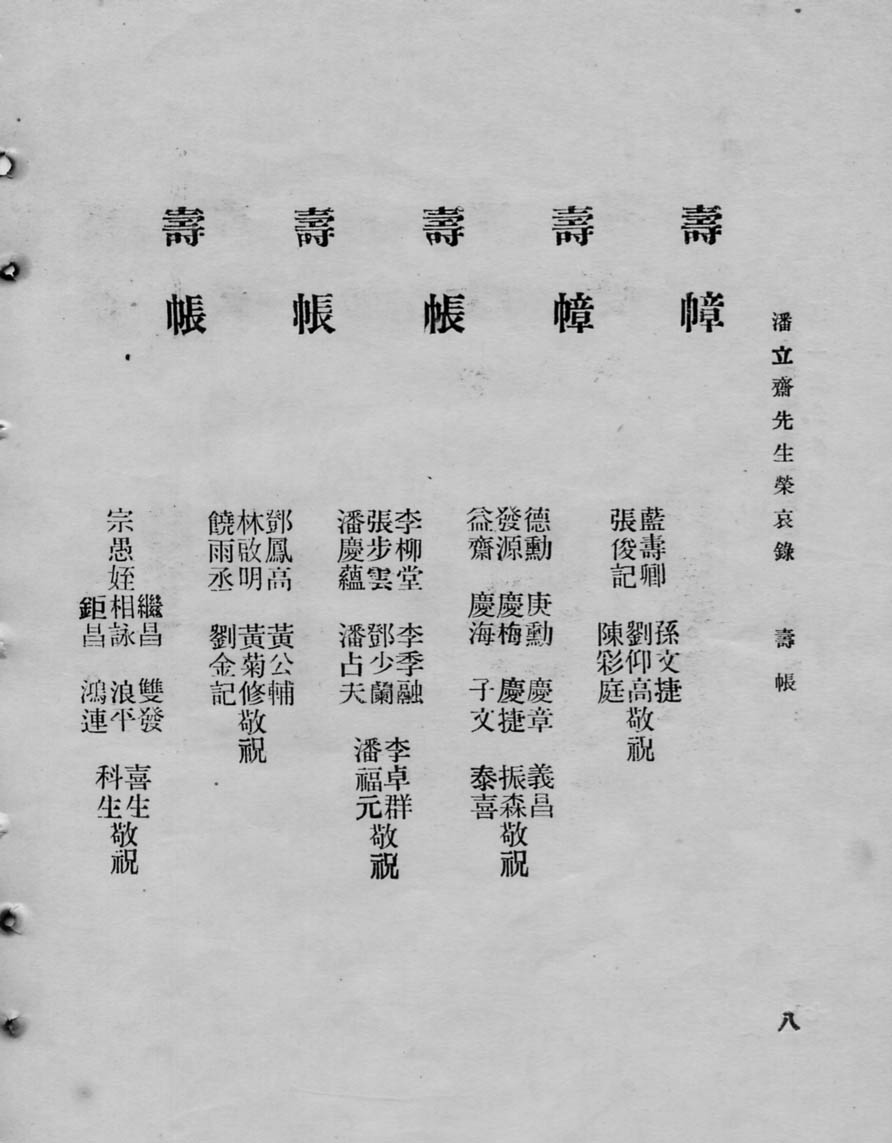 潘立齋先生榮哀錄　壽帳
八
壽幛
藍壽卿　孫文捷
張俊記　劉仰高敬祝
陳彩庭
壽幛
德勳　庚勳　慶章　義昌
發源　慶梅　慶捷　振森敬祝
益齋　慶海　子文　泰喜
壽帳
李柳堂　李季融　李卓群
張步雲　鄧少蘭　敬祝
潘慶蘊　潘占天　潘福元
壽帳
鄧鳳高　黃公輔
林啟明　黃菊修敬祝
饒雨丞　劉金記
壽帳
繼昌　雙發　喜生
宗愚姪相詠　浪平　敬祝
鉅昌　鴻連　科生